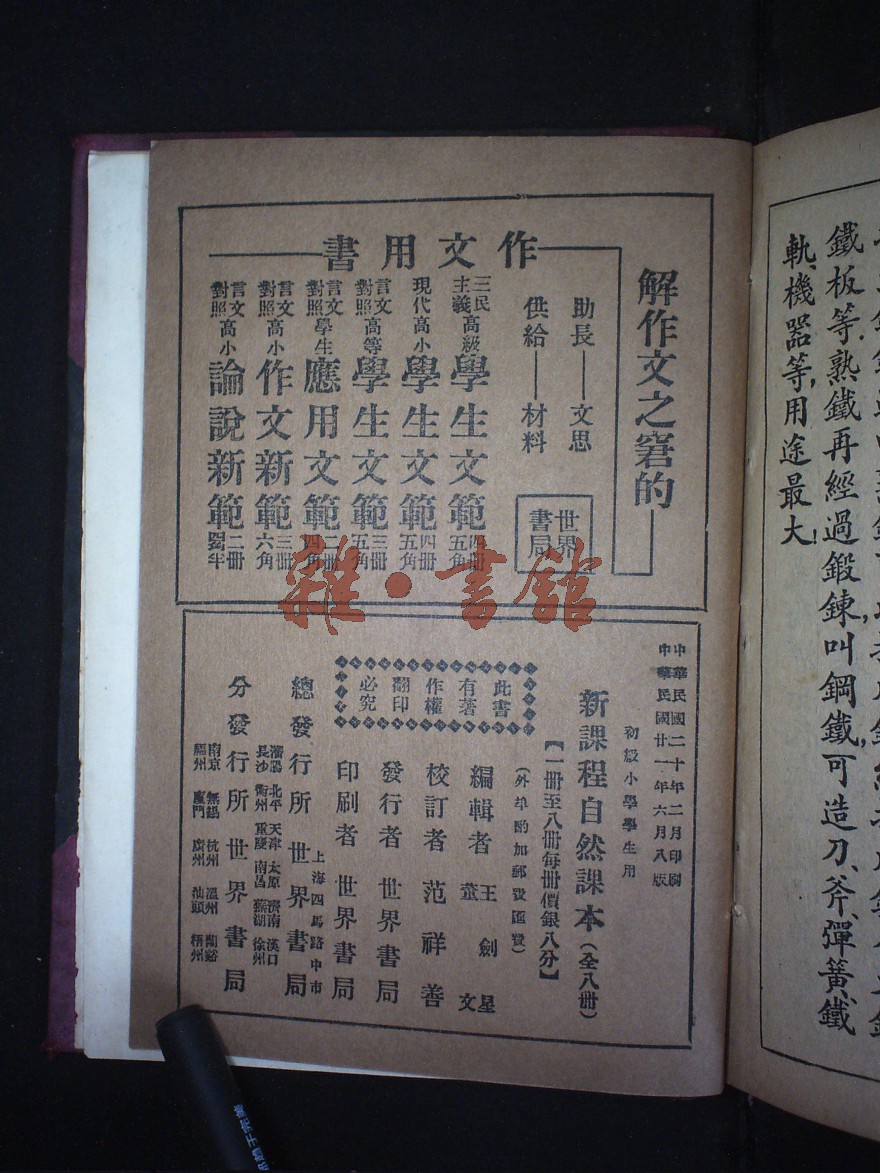 軌、機器等,用途最大!
鐵板等.熟鐵再經過鍛鍊,叫鋼鐵,可造刀、斧、彈簧、鐵
解作文之窘的
助長——文思
供給——材料
世界書局
作文用書
三民主義高級學生文範四冊五角
現代高小學生文範四冊五角
言文對照高等學生文範三冊五角
言文對照學生應用文範二冊四角
言文對照高小作文新範三冊六角
言文對照高小論說新範二冊
中華民國二十年二月印刷
中華民國廿一年六月八版
初級小學學生用
新課程自然課本(全八冊)
【一冊至八冊每冊價銀八分】
(外埠酌加郵費匯費)
此書有著作權翻印必究
編輯者 王劍星 董文
校訂者 范祥善
發行者 世界書局
印刷者 世界書局
上海四馬路中市
總發行所 世界書局
瀋陽 北平 天津 太原 濟南 漢口
長沙 衡州 重慶 南昌 蕪湖 徐州
分發行所 世界書局
南京 無錫 杭州 溫州 蘭谿
福州 廈門 廣州 汕頭 梧州
雜·書館